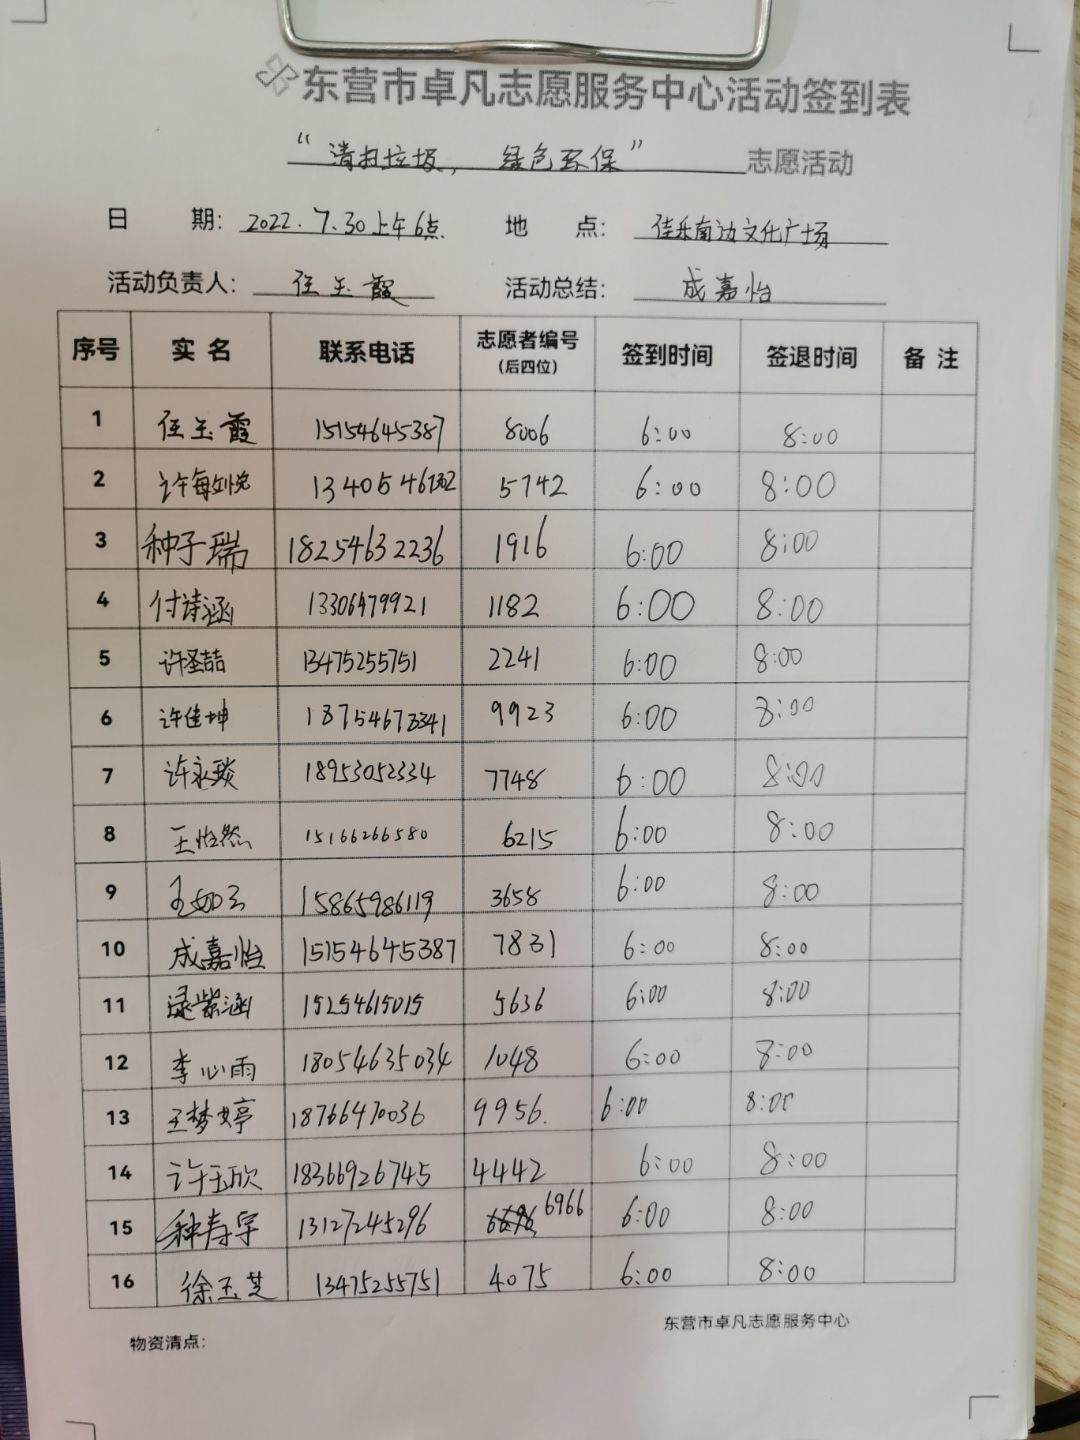 东营市卓凡志愿服务中心活动签到表
“清扫垃圾， 绿色环保” 志愿活动
日 期：2022.7.30上午6点 地 点：佳乐南边文化广场
活动负责人：任玉霞 活动总结：成嘉怡
序号 实名 联系电话 志愿者编号（后四位） 签到时间 签退时间 备注
1 任玉霞 15154645387 8006 6:00 8:00
2 许 1340546 5742 6:00 8:00
3 种子瑞 18254632236 1916 6:00 8:00
4 付诗涵 13306479921 1182 6:00 8:00
5 许圣喆 13475255751 2241 6:00 8:00
6 许佳坤 9923 6:00 8:00
7 许永琰 18953052334 7748 6:00 8:00
8 王怡然 15166266580 6215 6:00 8:00
9 王如云 15865986119 3658 6:00 8:00
10 成嘉怡 15154645387 7831 6:00 8:00
11 紫涵 15254615015 5636 6:00 8:00
12 李心雨 18054635034 1048 6:00 8:00
13 王梦婷 18766470036 9956. 6:00 8:00
14 许玉欣 18366926745 4442 6:00 8:00
15 种寿宇 13127245296 6966 6:00 8:00
16 徐玉芝 13475255751 4075 6:00 8:00
东营市卓凡志愿服务中心
物资清点：